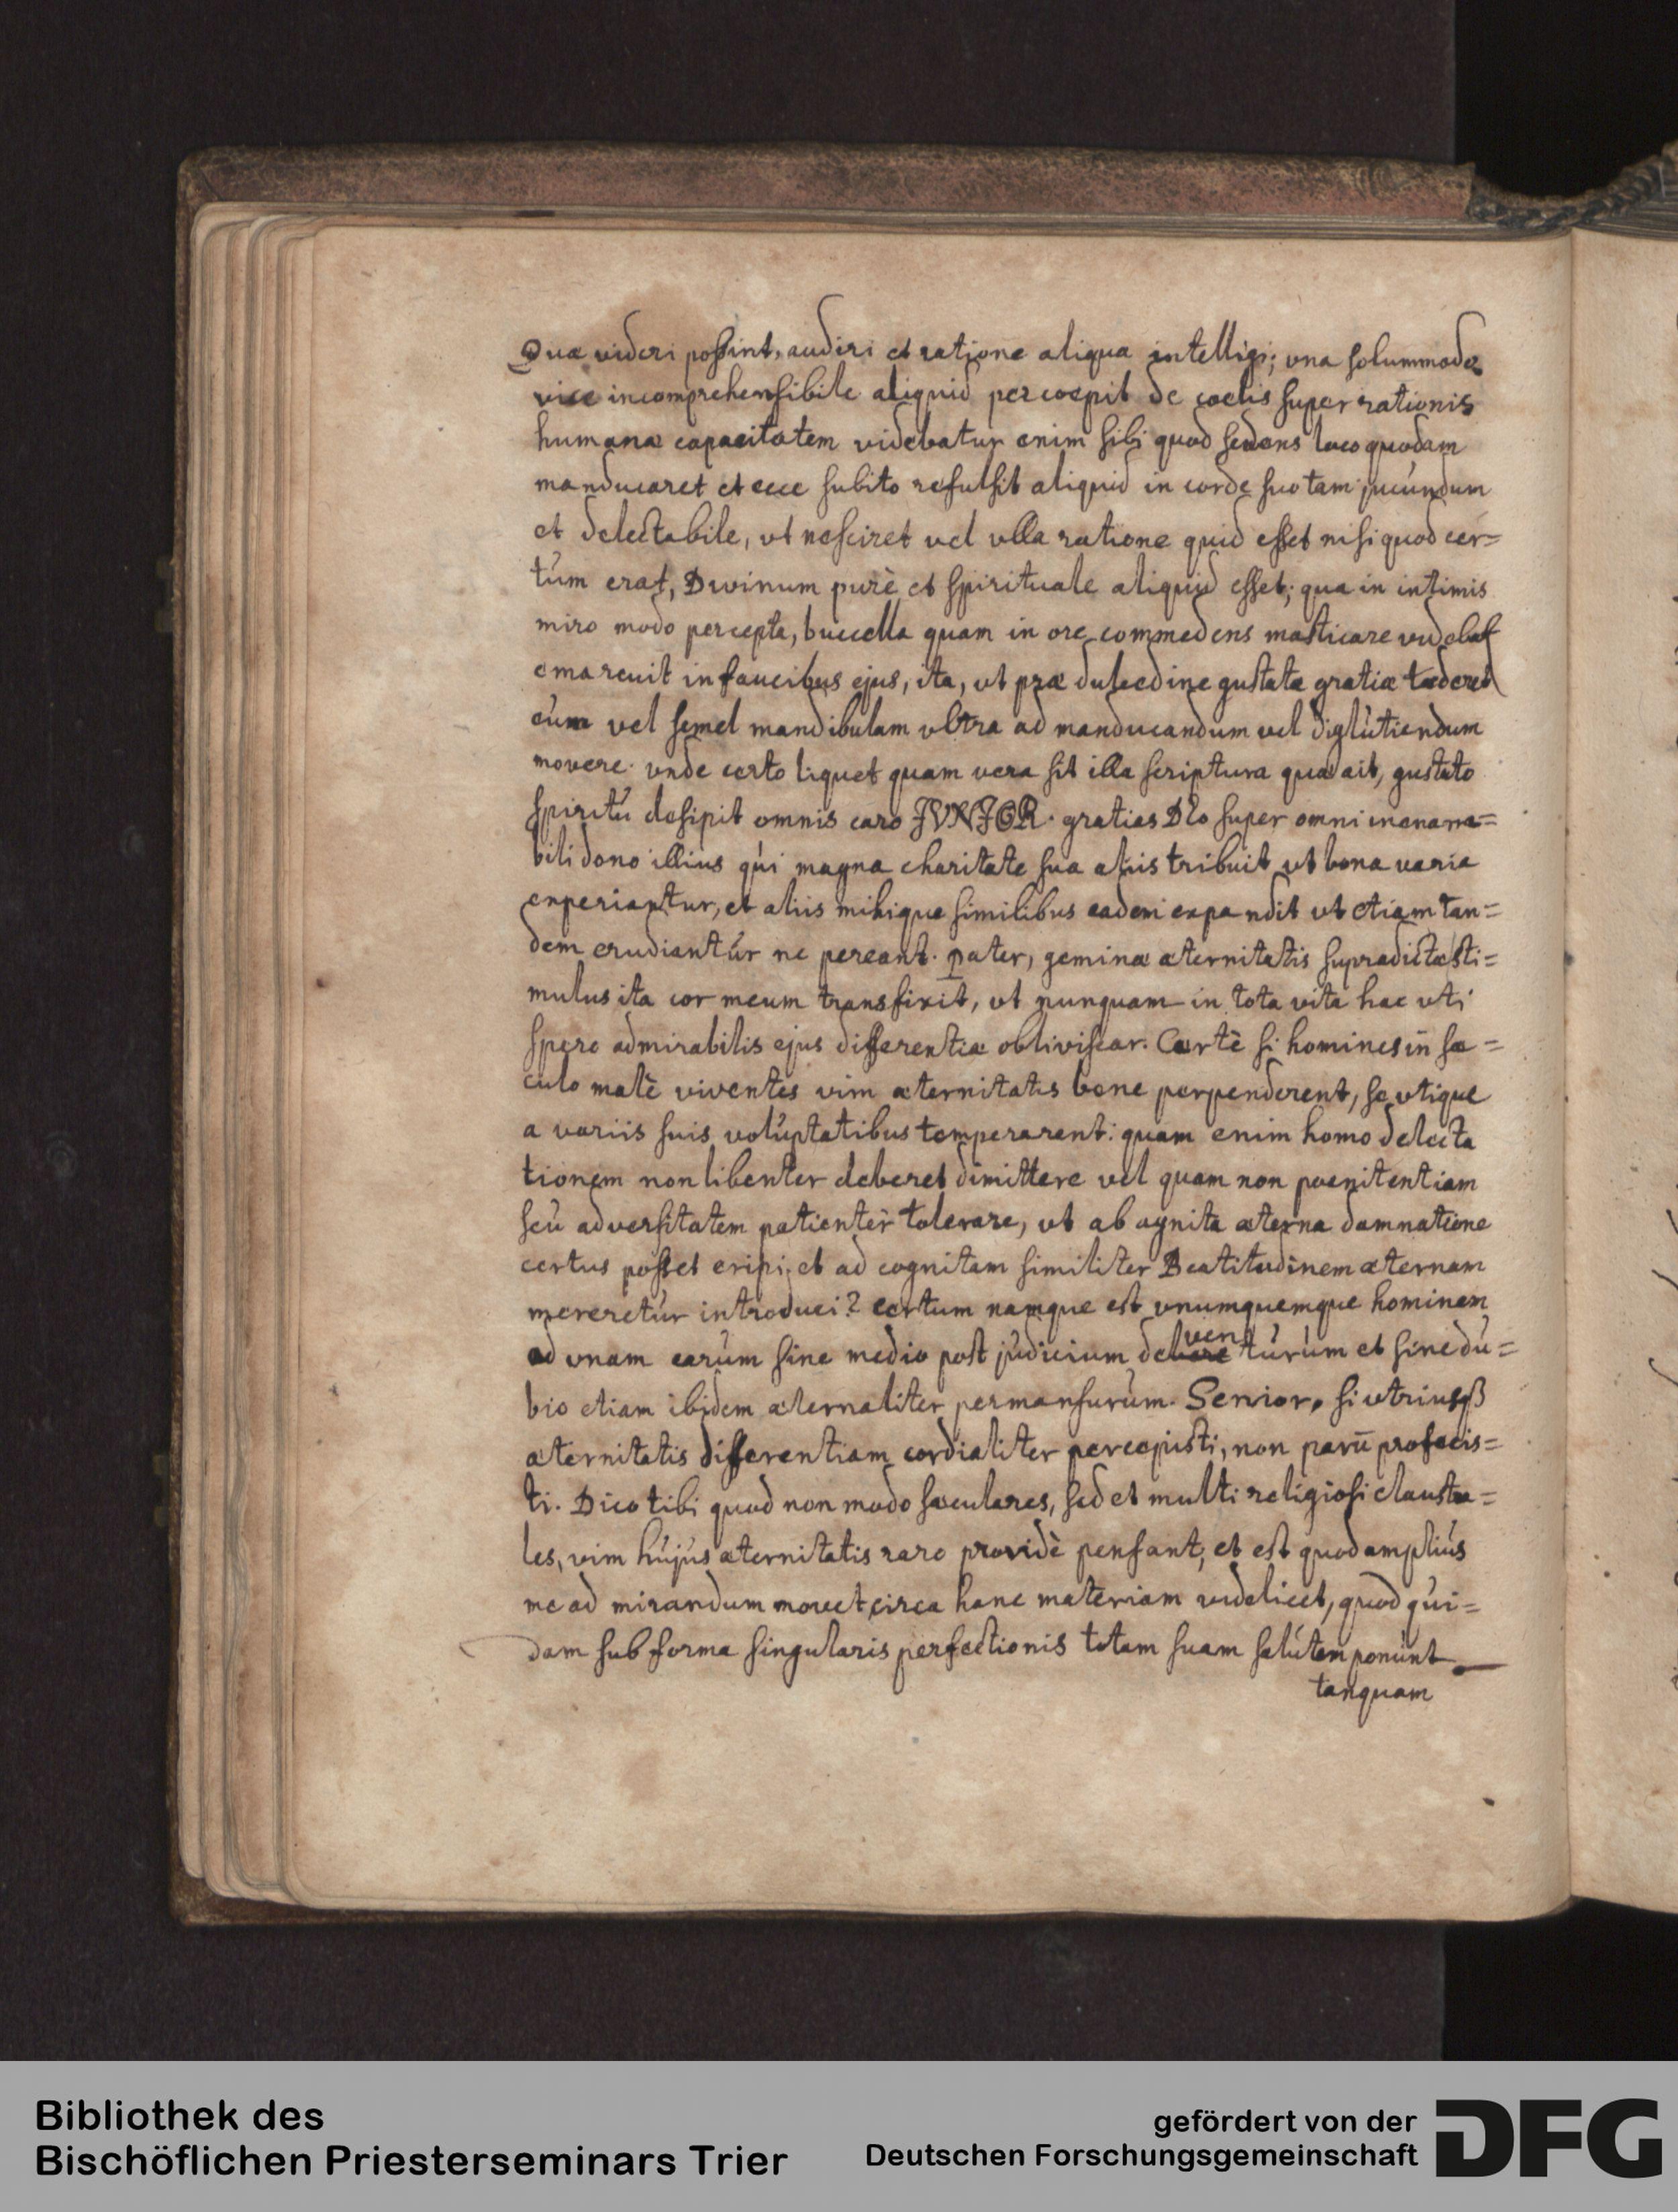 Quæ videri possint, audiri et ratione aliqua intelligi; vna solummodo
vice incomprehensibile aliquid percoepit de coelis super rationis
humanæ capacitatem videbatur enim sibi quod sedens loco quodam
manducaret et ecce subito refulsit aliquid in corde suo tam jucúndum
et delectabile, vt nesciret vel vlla ratione quid esset nisi quod cer=
túm erat, Divinum purè et spirituale aliquid esset; qua in intimis
miro modo percepta, buccella quam in ore commedens masticare videbat
emarcuit in faucibus ejus, ita, vt præ dulcedine gustatæ gratiæ tæderet
eúm vel semel mandibulam vltra ad manducandum vel diglútiendum
movere. vnde certo liquet quam vera sit illa scriptura quæ ait, gustato
spiritú desipit omnis caro JVNJOR. gratias Deo super omni inenarra=
bili dono illius qúi magna charitate sua aliis tribuit vt bona varia
experiantur, et aliis mihique similibus eadem expandit vt etiam tan=
dem erudiantúr ne pereant. pater, geminæ æternitatis supradictæ sti=
mulus ita cor meum transfixit, vt nunquam in tota vita hac vti
spero admirabilis ejus differentiæ obliviscar. Certè si homines in sæ=
culo malè viventes vim æternitatis bene perpenderent, se vtique
a variis suis volúptatibus temperarent: quam enim homo delecta
tionem non libenter deberet dimittere vel quam non poenitentiam
seú adversitatem patientèr tolerare, vt ab agnita æterna damnatione
certus posset eripi, et ad cognitam similiter Beatitudinem æternam
mereretúr introduci? certum namque est vnumquemque hominem
ad vnam earúm sine medio post júdicium debere ven túrúm et sine dú=
bio etiam ibidem æternaliter permansurúm. Senior, si vtriusqß
æternitatis differentiam cordialiter percepisti, non parū profecis=
ti. Dico tibi quod non modo sæculares, sed et multi religiosi claustra=
les, vim hújús æternitatis raro providè pensant, et est quod ampliús
me ad mirandum movet circa hanc materiam videlicet, quod qúi=
dam sub forma singularis perfectionis totam suam salútem ponúnt
tanquam
Bibliothek des
Bischöflichen Priesterseminars Trier
gefördert von der
Deutschen Forschungsgemeinschaft
DFG